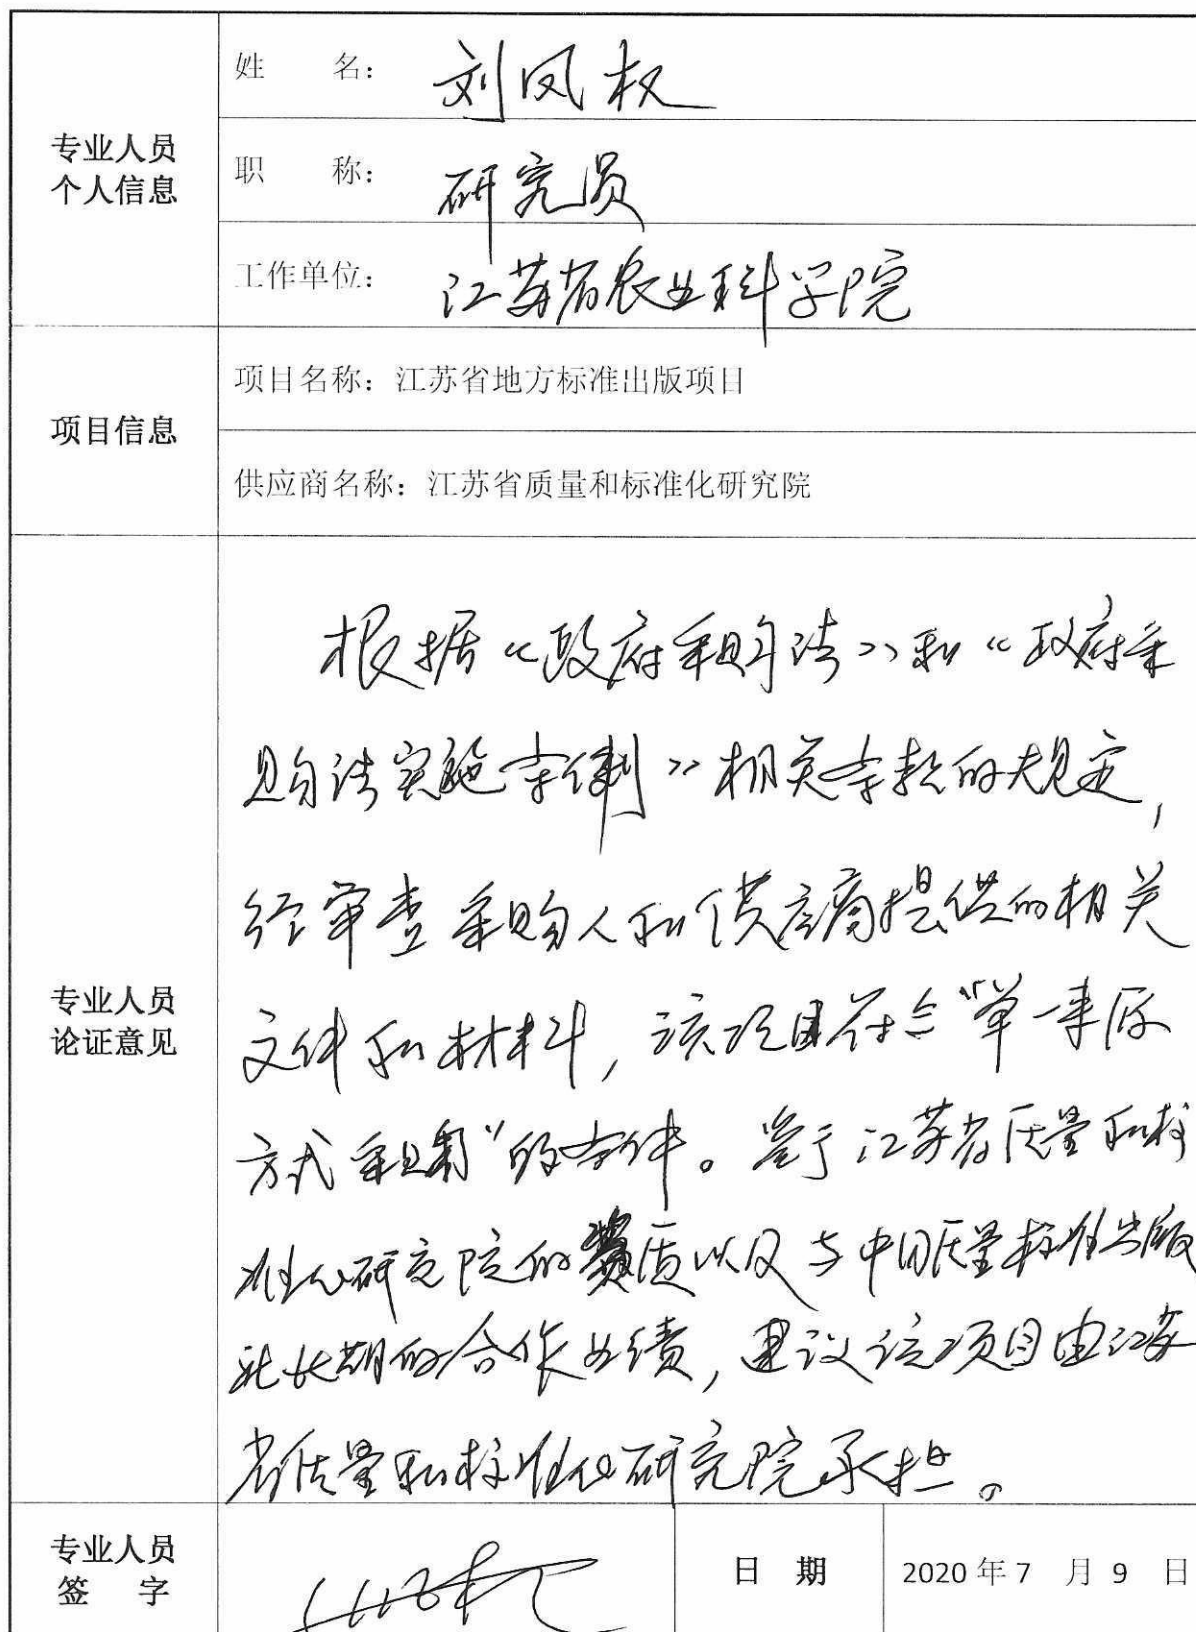 姓 名: 刘凤权
专业人员
个人信息
职 称: 研究员
工作单位: 江苏省农业科学院
项目信息
项目名称: 江苏省地方标准出版项目
供应商名称: 江苏省质量和标准化研究院
专业人员
论证意见
根据《政府采购法》和《政府采
购法实施条例》相关条款的规定,
经审查采购人和供应商提供的相关
文件和材料, 该项目符合“单一来源
方式采购”的条件。鉴于江苏省质量和标
准化研究院的资质以及与中国质量标准出版
社长期的合作业绩, 建议该项目由江苏
省质量和标准化研究院承担。
专业人员
签 字
日 期
2020年7 月 9 日